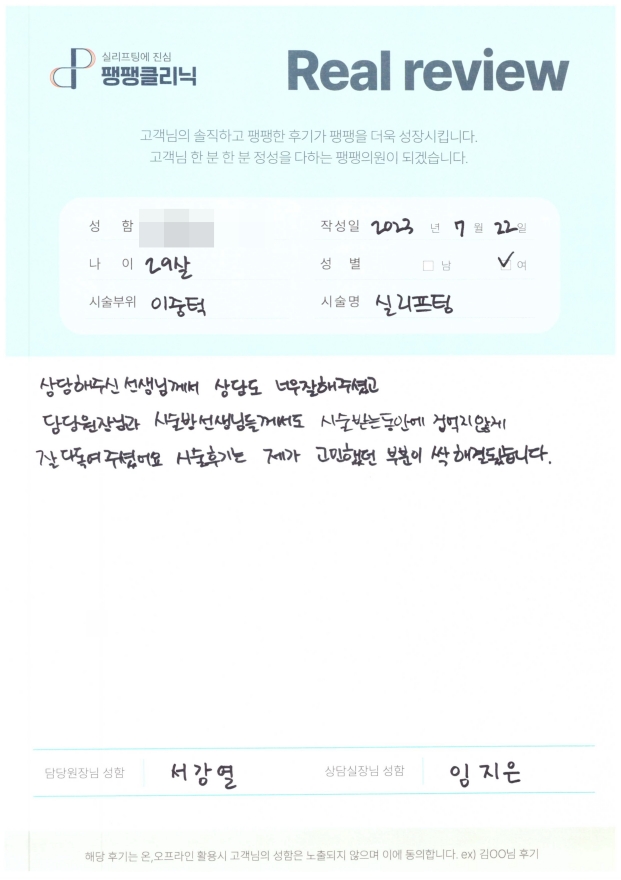 실리프팅에 진심
팽팽클리닉
Real review
고객님의 솔직하고 팽팽한 후기가 팽팽을 더욱 성장시킵니다.
고객님 한 분 한 분 정성을 다하는 팽팽의원이 되겠습니다.
성 함
작성일 2023 년 7 월 22일
나 이 29살
성 별 남 여
시술부위 이중턱
시술명 실리프팅
상담해주신 선생님께서 상담도 너무잘해주셨고
담당원장님과 시술방선생님들께서도 시술받는동안에 겁먹지않게
잘 다독여주셨어요 시술후기는 제가 고민했던 부분이 싹 해결됐습니다.
담당원장님 성함 서강열
상담실장님 성함 임지은
해당 후기는 온,오프라인 활용시 고객님의 성함은 노출되지 않으며 이에 동의합니다. ex) 김OO님 후기